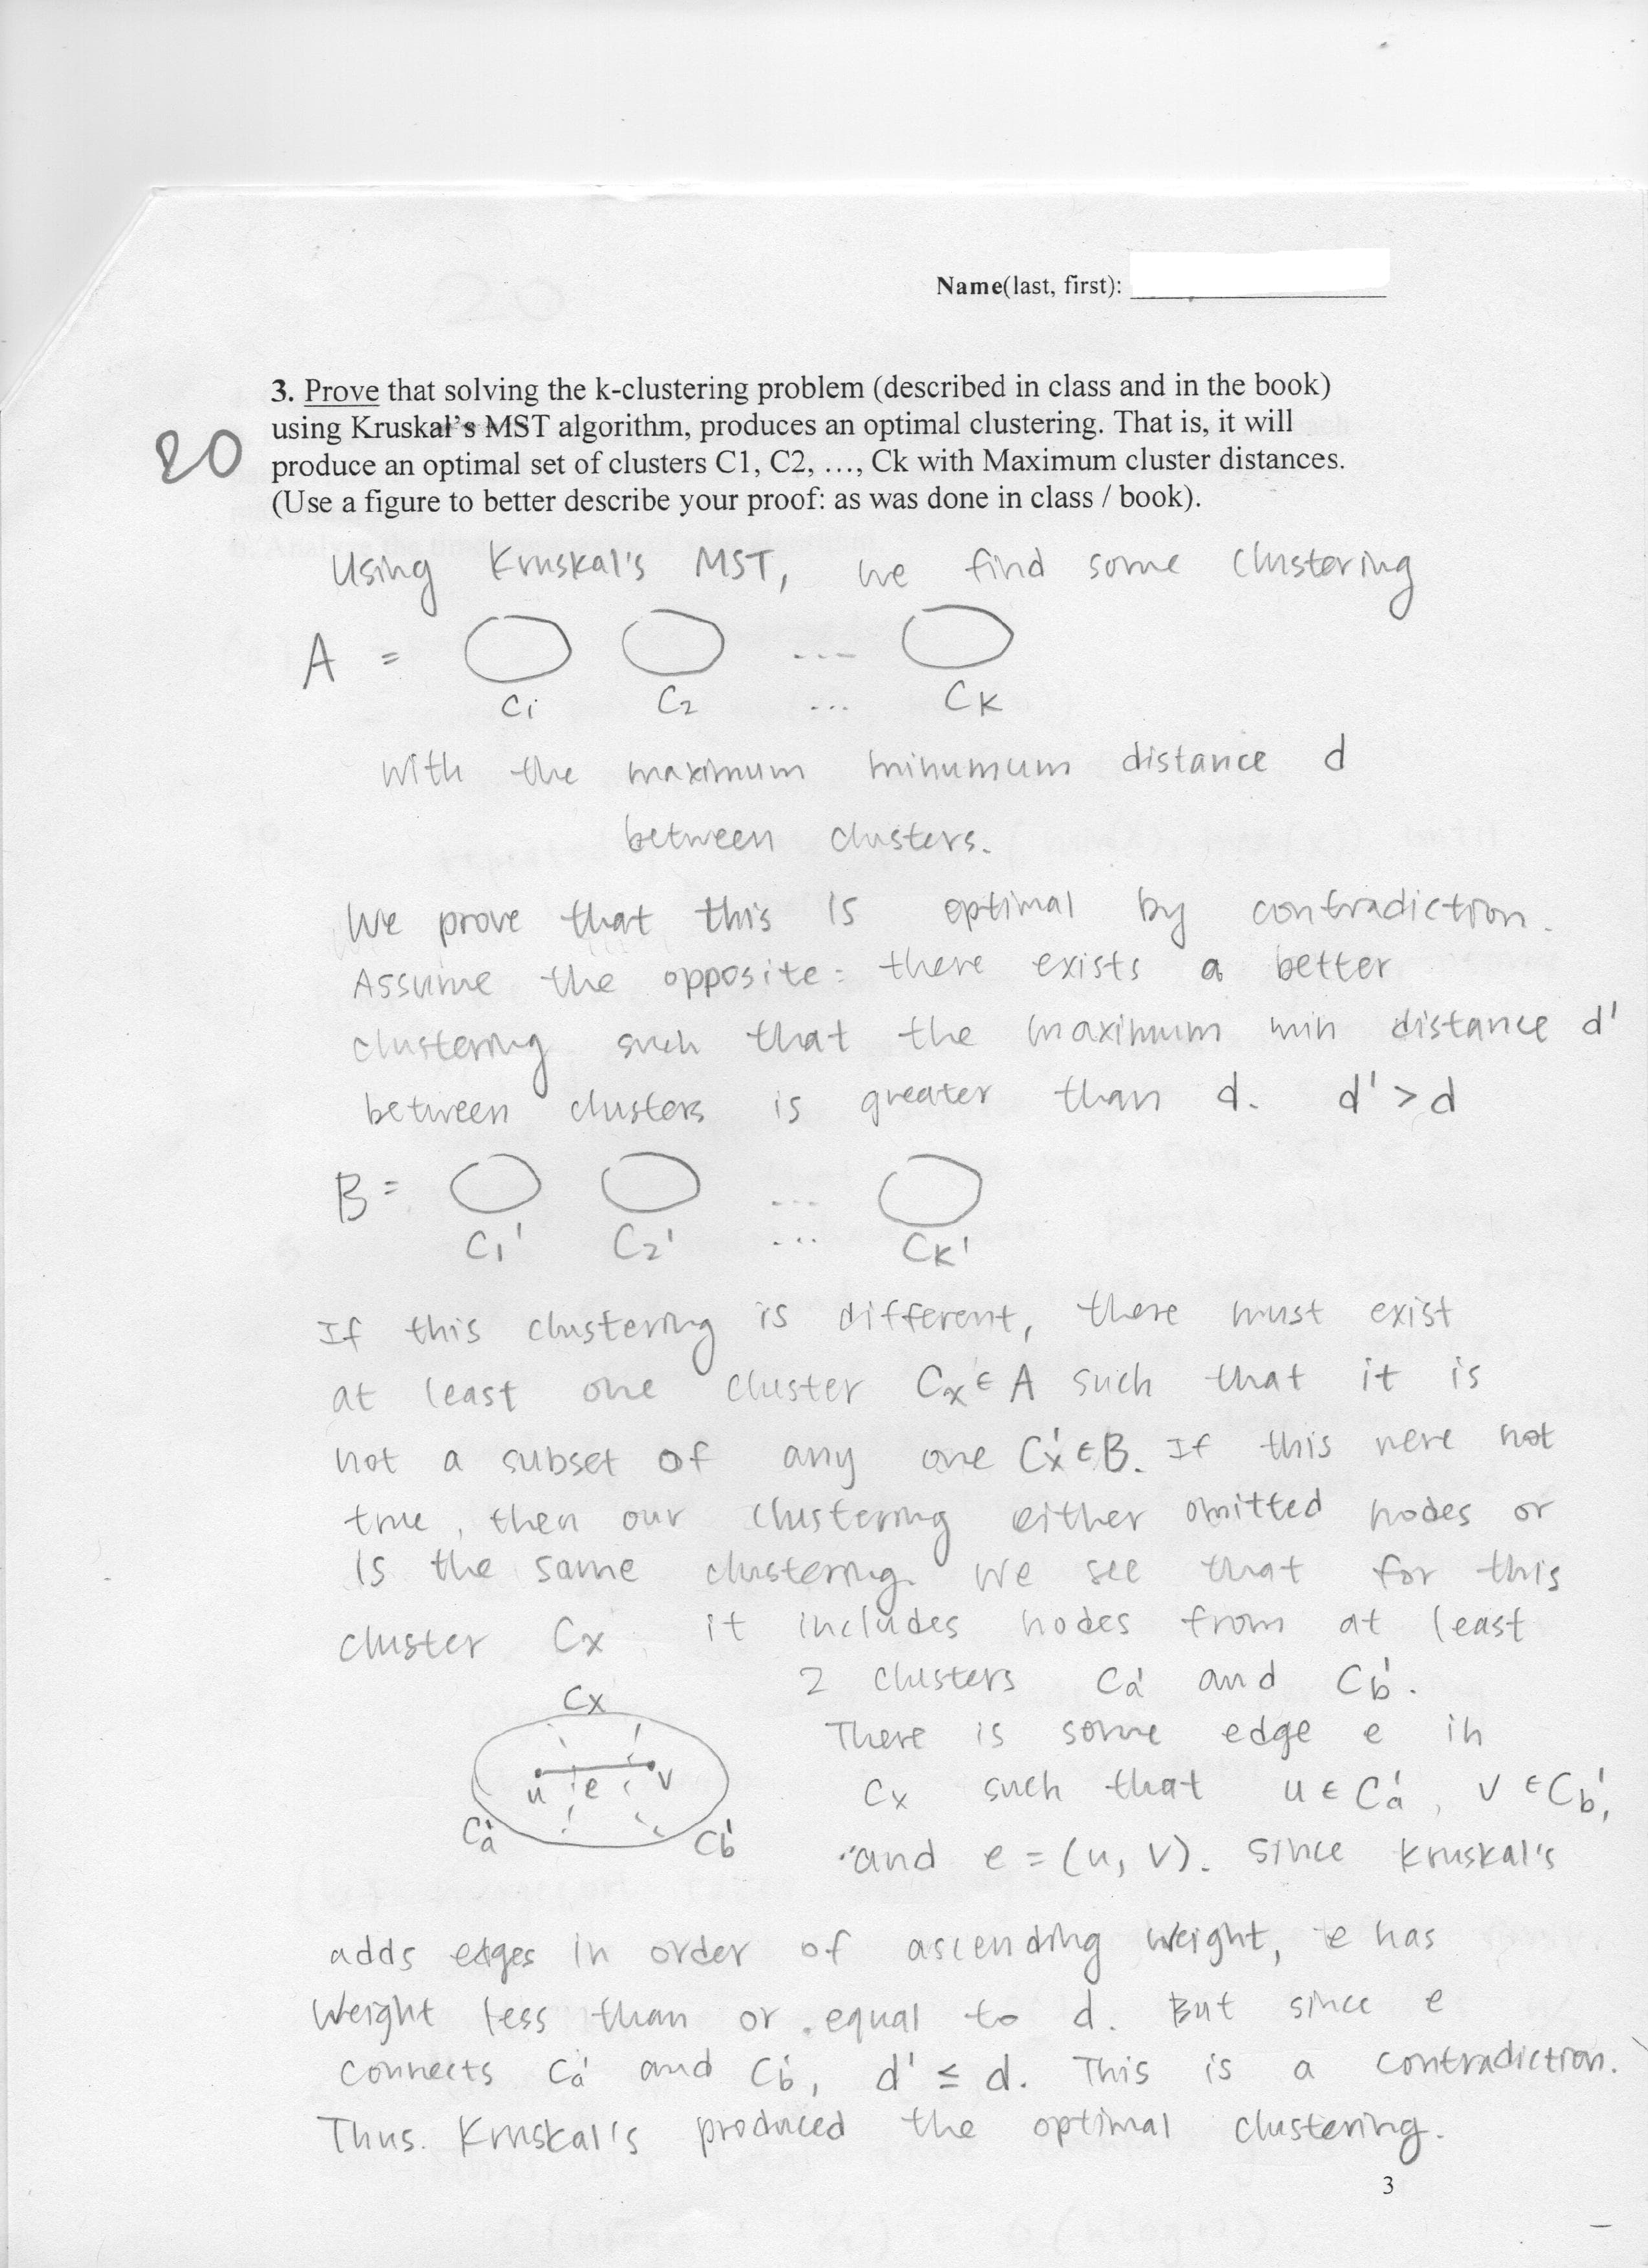 Name(last, first):
3. Prove that solving the k-clustering problem (described in class and in the book)
using Kruskal's MST algorithm, produces an optimal clustering. That is, it will
20
produce an optimal set of clusters C1, C2, …, Ck with Maximum cluster distances.
(Use a figure to better describe your proof: as was done in class / book).
Using Kruskal's MST, we find some clustering
A = ...
C1 C2 ... CK
with the maximum minumum distance d
between clusters.
We prove that this is optimal by contradiction.
Assume the opposite: there exists a better
clustering such that the maximum min distance d'
between clusters is greater than d. d' > d
B = ...
C1' C2' ... CK'
If this clustering is different, there must exist
at least one cluster Cx ∈ A such that it is
not a subset of any one Cx' ∈ B. If this were not
true, then our clustering either omitted nodes or
is the same clustering. We see that for this
cluster Cx it includes nodes from at least
2 clusters Ca' and Cb'.
Cx
There is some edge e in
u e v
Cx such that u ∈ Ca', v ∈ Cb',
Ca' Cb'
and e = (u, v). Since Kruskal's
adds edges in order of ascending weight, e has
weight less than or equal to d. But since e
connects Ca' and Cb', d' ≤ d. This is a contradiction.
Thus. Kruskal's produced the optimal clustering.
3